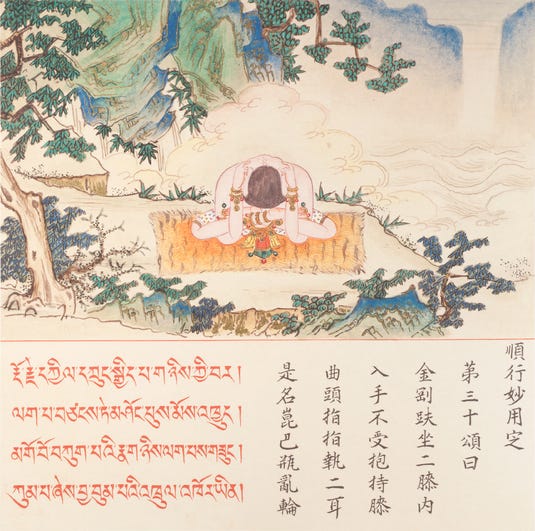 རྡོ་རྗེ་དཀྱིལ་དཀྲུང་སྒྱིད་པ་གཉིས་ཀྱི་བར།
ལག་པ་བཙངས་ཏེ་མ་ཤོང་པུས་མོས་འཁྱུད།
མགོ་བོ་བཀུག་པའི་རྣ་གཉིས་ལག་པས་གཟུང་།
ཀུམ་པ་ཞེས་བྱ་བུམ་པའི་འཕྲུལ་འཁོར་ཡིན།
順行妙用定
第三十頌曰
金剛趺坐二膝內
入手不受抱持膝
曲頭指指執二耳
是名崑巴瓶亂輪